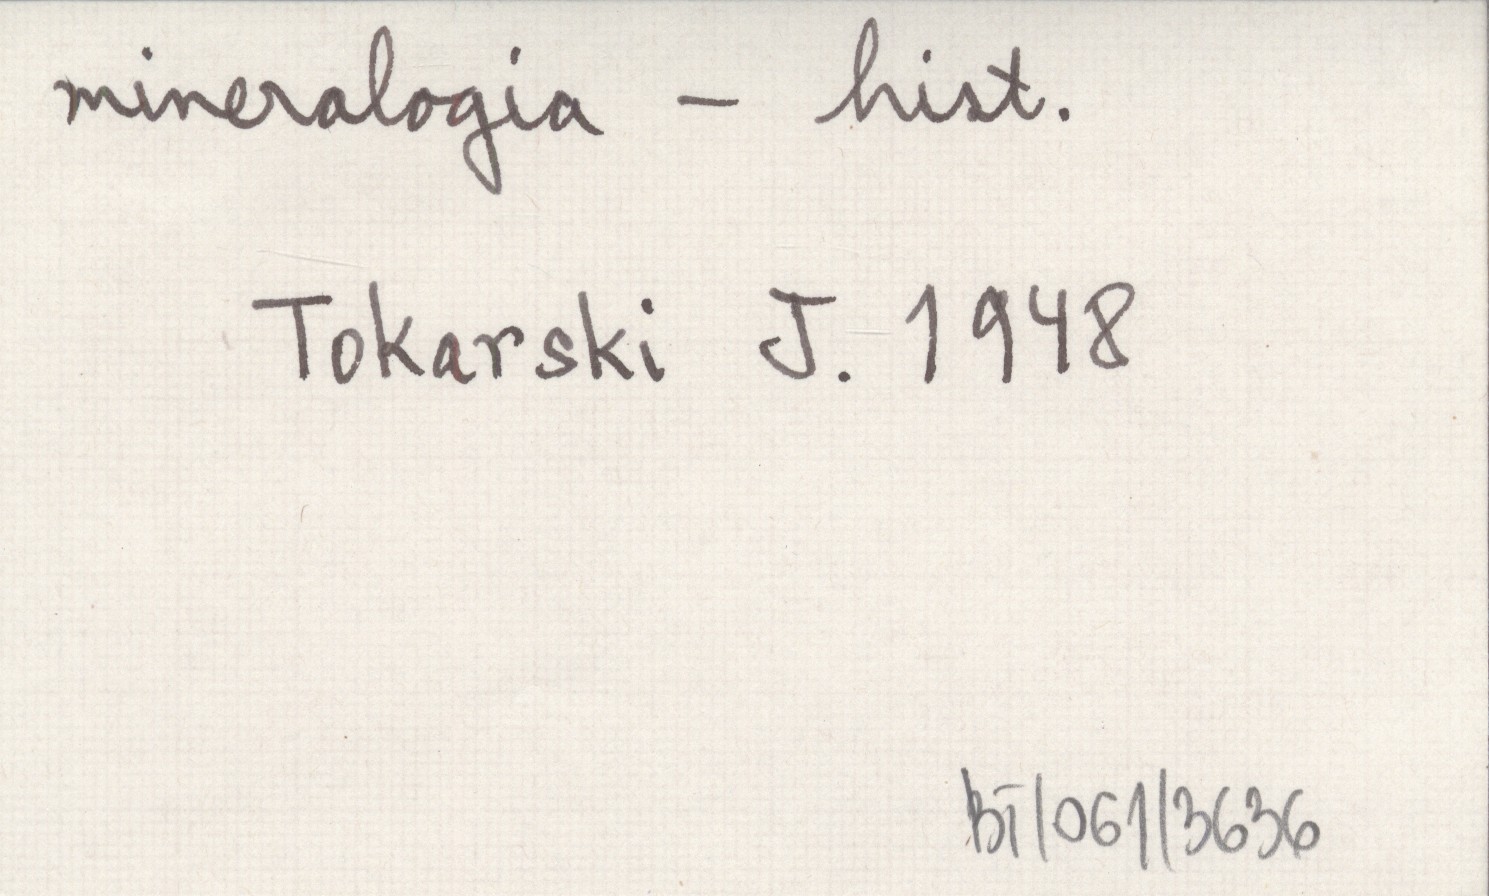 mineralogia - hist.
Tokarski J. 1948
BT/061/3636